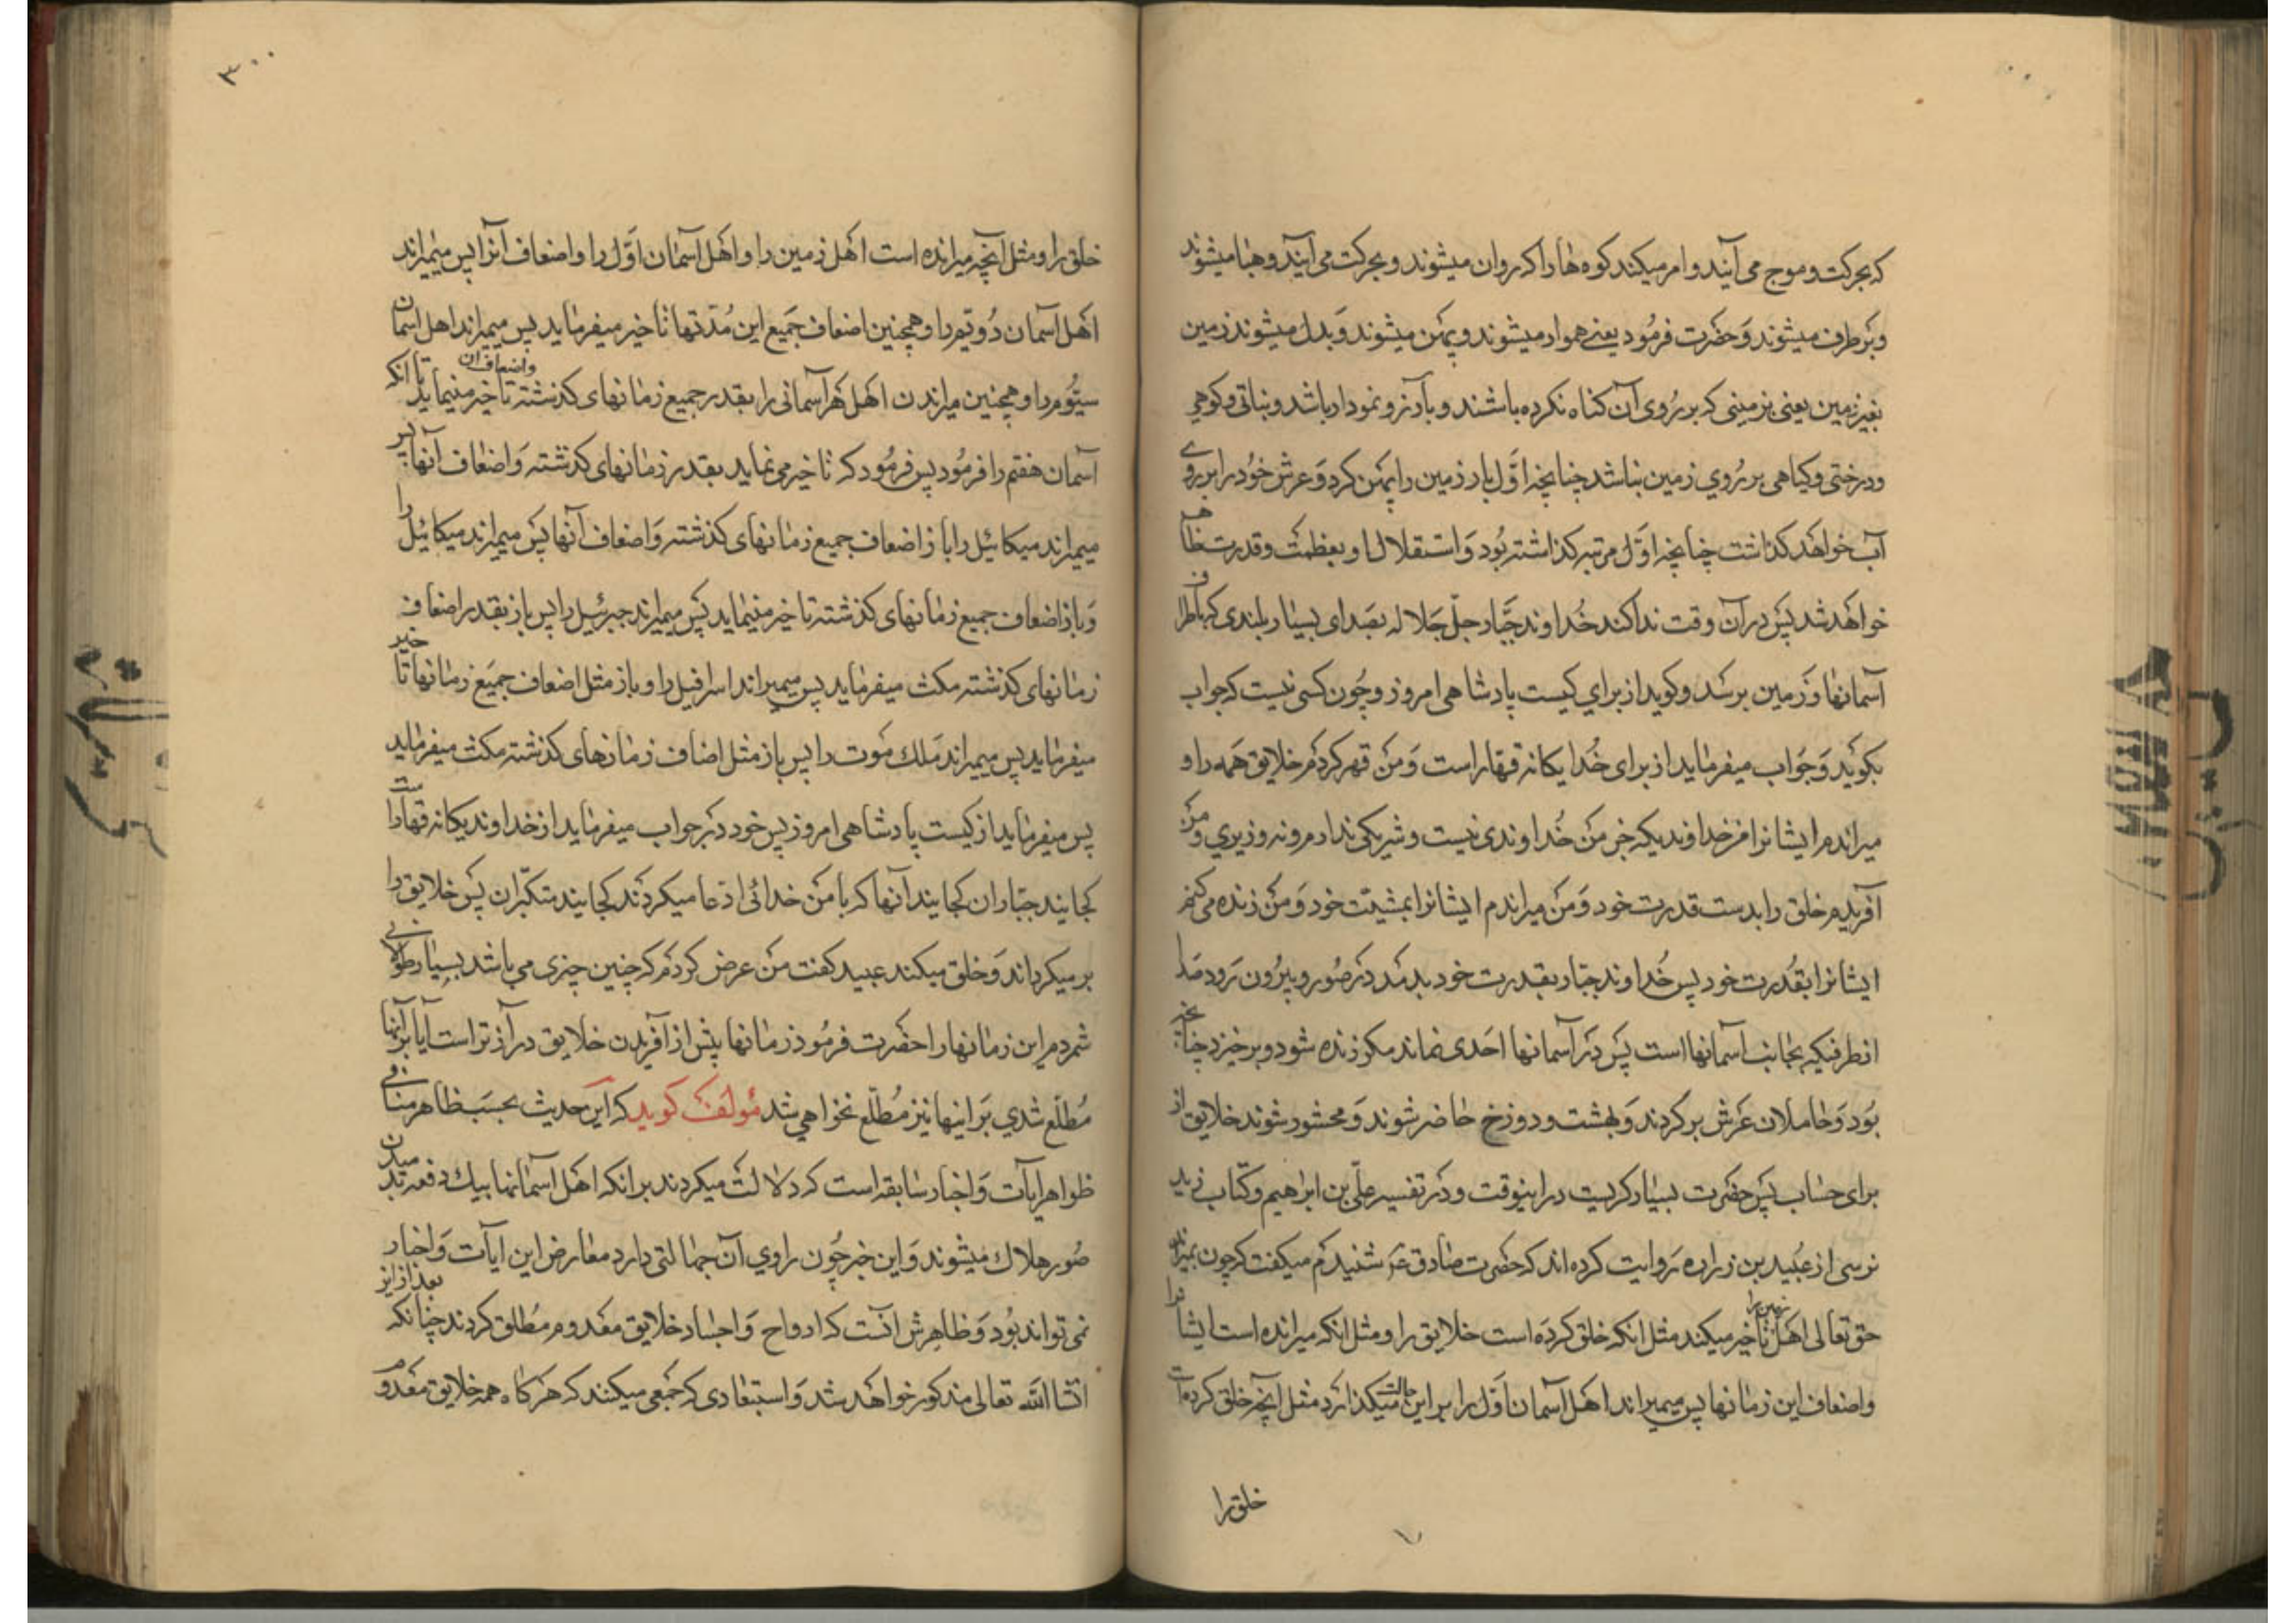 که بحرکت و موج می آیند و امر میکند کوه هٰا را که روان میشوند و بحرکت می آیند و هبٰا میشوند
و برطرف میشوند وَحضرت فرمُود یعنے هموار میشوند و پهن میشوند وَبدل میشوند زمین
بغیر زمین یعنی بزمینی که بر رُوی آن کناه نکرده باشند و بارز و نمودار باشد و نباتی و کوهی
و درختی و کیاهی بر رُوی زمین نباشد چنانچه اوَّل بار زمین را پهن کرد وَعرش خوُد را بر روی
آب خواهَد کذاشت چنانچه اوّل مرتبه کذاشته بوُد وَاستقلال او بعظمت و قدرت ظاهر
خواهَد شد پَس در آن وقت ندا کند خُداوند جبَّار جلّ جَلاله بصَدای بسیٰار بلندی که باطراف
آسمانهٰا وَزمین برسَد و کوید از برای کیست پادشاهی امروز و چُون کسی نیست که جواب
بکوید وَجوَاب میفرماید از برای خُدا یکانه قهار است وَمن قهر کردم خلایق همَه را و
میراندم ایشانرا منم خداوندیکه جز من خُداوندی نیست و شریکی ندارم و نه وزیری و من
آفریدم خلق را بدست قدرت خود وَمن میراندم ایشانرا بمشیّت خود وَمن زنده می کنم
ایشانرا بقُدرت خود پس خُداوند جبّار بقدرت خود بدمَد در صُور و بیرُون رَود صَدا
از طرفیکه بجٰانب آسمانها است پَس در آسمانها احَدی نماند مکر زنده شود و برخیزد چنانچه
بوُد وَحٰاملان عَرش برکردند وَبهشت و دوزخ حٰاضر شوند وَمحشور شوند خلایق از
برای حسٰاب پَس حضَرت بسیٰار کریست در اینوقت و در تفسیر علّی بن ابراهیم و کتاب زید
نرسی از عبُید بن زراره روَایت کرده اند که حضرت صٰادق ع شنیدم میکفت که چون بمیراند
حق تعالی اهَل زمین را تاخیر میکند مثل انکه خلق کرده است خلایق را و مثل انکه میرانده است ایشانرا
و اضعاف این زمٰانها پس میمیراند اهَل آسمان اوَّل را بر این حالت میکذارد مثل آنچه خلق کرده است
خلق را
٣٠٠
خلق را و مثل آنچه میرانده است اهَل زمین را و اهَل آسمٰان اوَّل را و اضعاف آنرا پس میمیراند
اهَل آسمان دُویّم را و همچنین اضعاف جَمیع این مُدّتها تٰاخیر میفرماید پس میمیراند اهل اسمان
سیّوُم را و همچنین میراندن اهَل هَر آسمانی را بقدر جمیع زمٰانهای کذشته و اضعاف ان تٰاخیر مینماید تا انکه
آسمٰان هفتم را فرمُود پس فرمُود که تٰاخیر می نماید بقدر زمٰانهای کذشته وَاضعاف آنها پس
میمیراند میکائیل را باز اضعاف جمیع زمٰانهای کذشته وَاضعاف آنها پَس میمیراند میکائیل را
وَباز اضعاف جمیع زمٰانهای کذشته تاخیر مینماید پَس میمیراند جبرئیل را پس باز بقدر اضعاف
زمٰانهای کذشته مکث میفرماید پس میمیراند اسرافیل را و باز مثل اضعاف جمَیع زمٰانها تاخیر
میفرماید پس میمیراند مَلك مَوت را پس باز مثل اضاف زمٰانهای کذشته مکث میفرماید
پس میفرماید از کیست پادشاهی امروز پس خود در جواب میفرماید از خداوند یکانه قهار است
کجایند جبّاران کجایند آنها که با من خدائی ادّعا میکردند کجایند متکبّران پَس خلایق را
برمیکرداند وَخلق میکند عبید کفت من عرض کردم که چنین چیزی می باشد بسیٰار طولانی
شمردم این زمٰانها را حضَرت فرمُود زمٰانها پیش از آفریدن خلایق درازتر است آیا بر آنها
مُطلّع شدی برَ اینها نیز مُطلّع نخواهی شد مُولَف کوید که این حدیث بحسَب ظاهر منافی
ظواهر ایات وَاخبار سٰابقه است که دلالت میکردند بر انکه اهَل آسمٰانها بیك دفعه بدمیدن
صُور هلاك میشوند وَاین خبر چُون راوی آن جهٰالتی دارد معٰارض این ایات وَاخبار
نمی تواند بوُد وَظاهرش انست که ارواح وَاجسٰاد خلایق معَدوم مُطلق کردند چنانکه بعد از این
انشاالله تعالی مذکور خواهَد شد وَاستبعٰادی که جمَعی میکنند که هَرکاه همه خلایق معَدوم